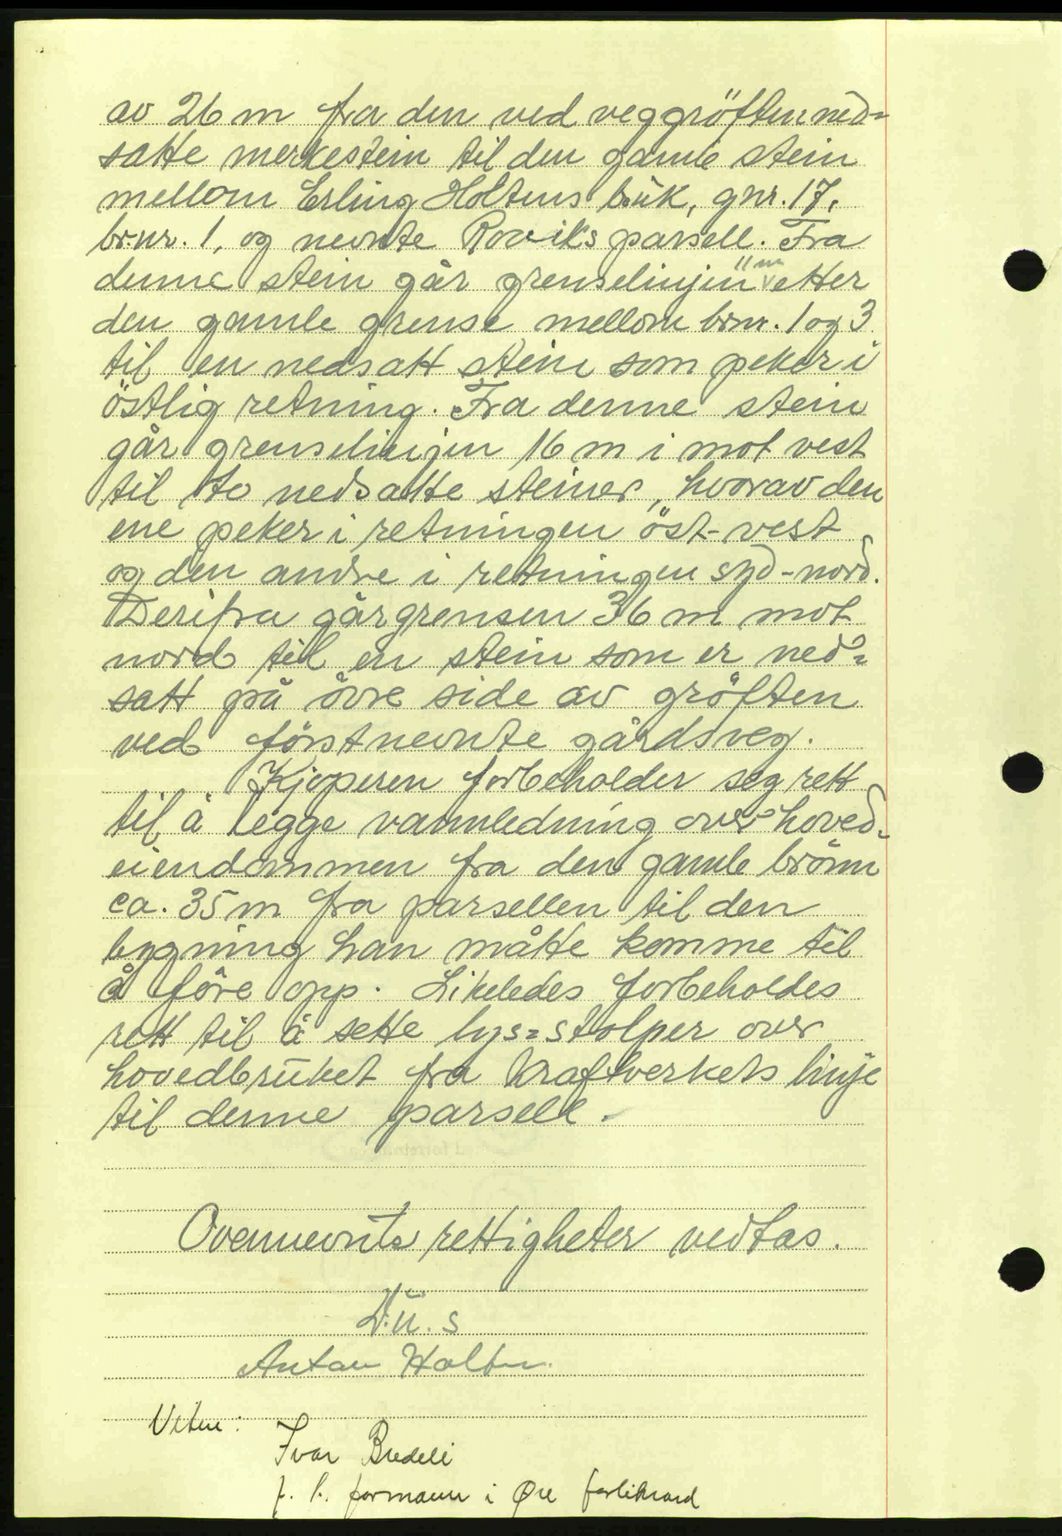 av 26 m fra den ved veggröften ned=
satte merkestein til den gamle stein
mellom Erling Holtens bruk, gnr. 17,
br.nr. 1, og nevnte Roviks parsell. Fra
denne stein går grenselinjen " m etter
den gamle grense mellom brnr. 1 og 3
til en nedsatt stein som peker i
östlig retning. Fra denne stein
går grenselinjen 16 m i mot vest
til to nedsatte steiner, hvorav den
ene peker i retningen öst-vest
og den andre i retningen syd-nord.
Derifra går grensen 36 m mot
nord til en stein som er ned=
satt på övre side av gröften
ved förstnevnte gårdsveg.
Kjøperen forbeholder seg rett
til å legge vannledning over hoved=
eiendommen fra den gamle brönn
ca. 35 m fra parsellen til den
bygning han måtte komme til
å före opp. Likeledes forbeholdes
rett til å sette lys=stolper over
hovedbruket fra kraftverkets linje
til denne parsell.
Ovennevnte rettigheter vedtas.
D.u.s
Anton Holten.
Viten:
Ivar Bredeli
f. h. formann i Øre forliksråd